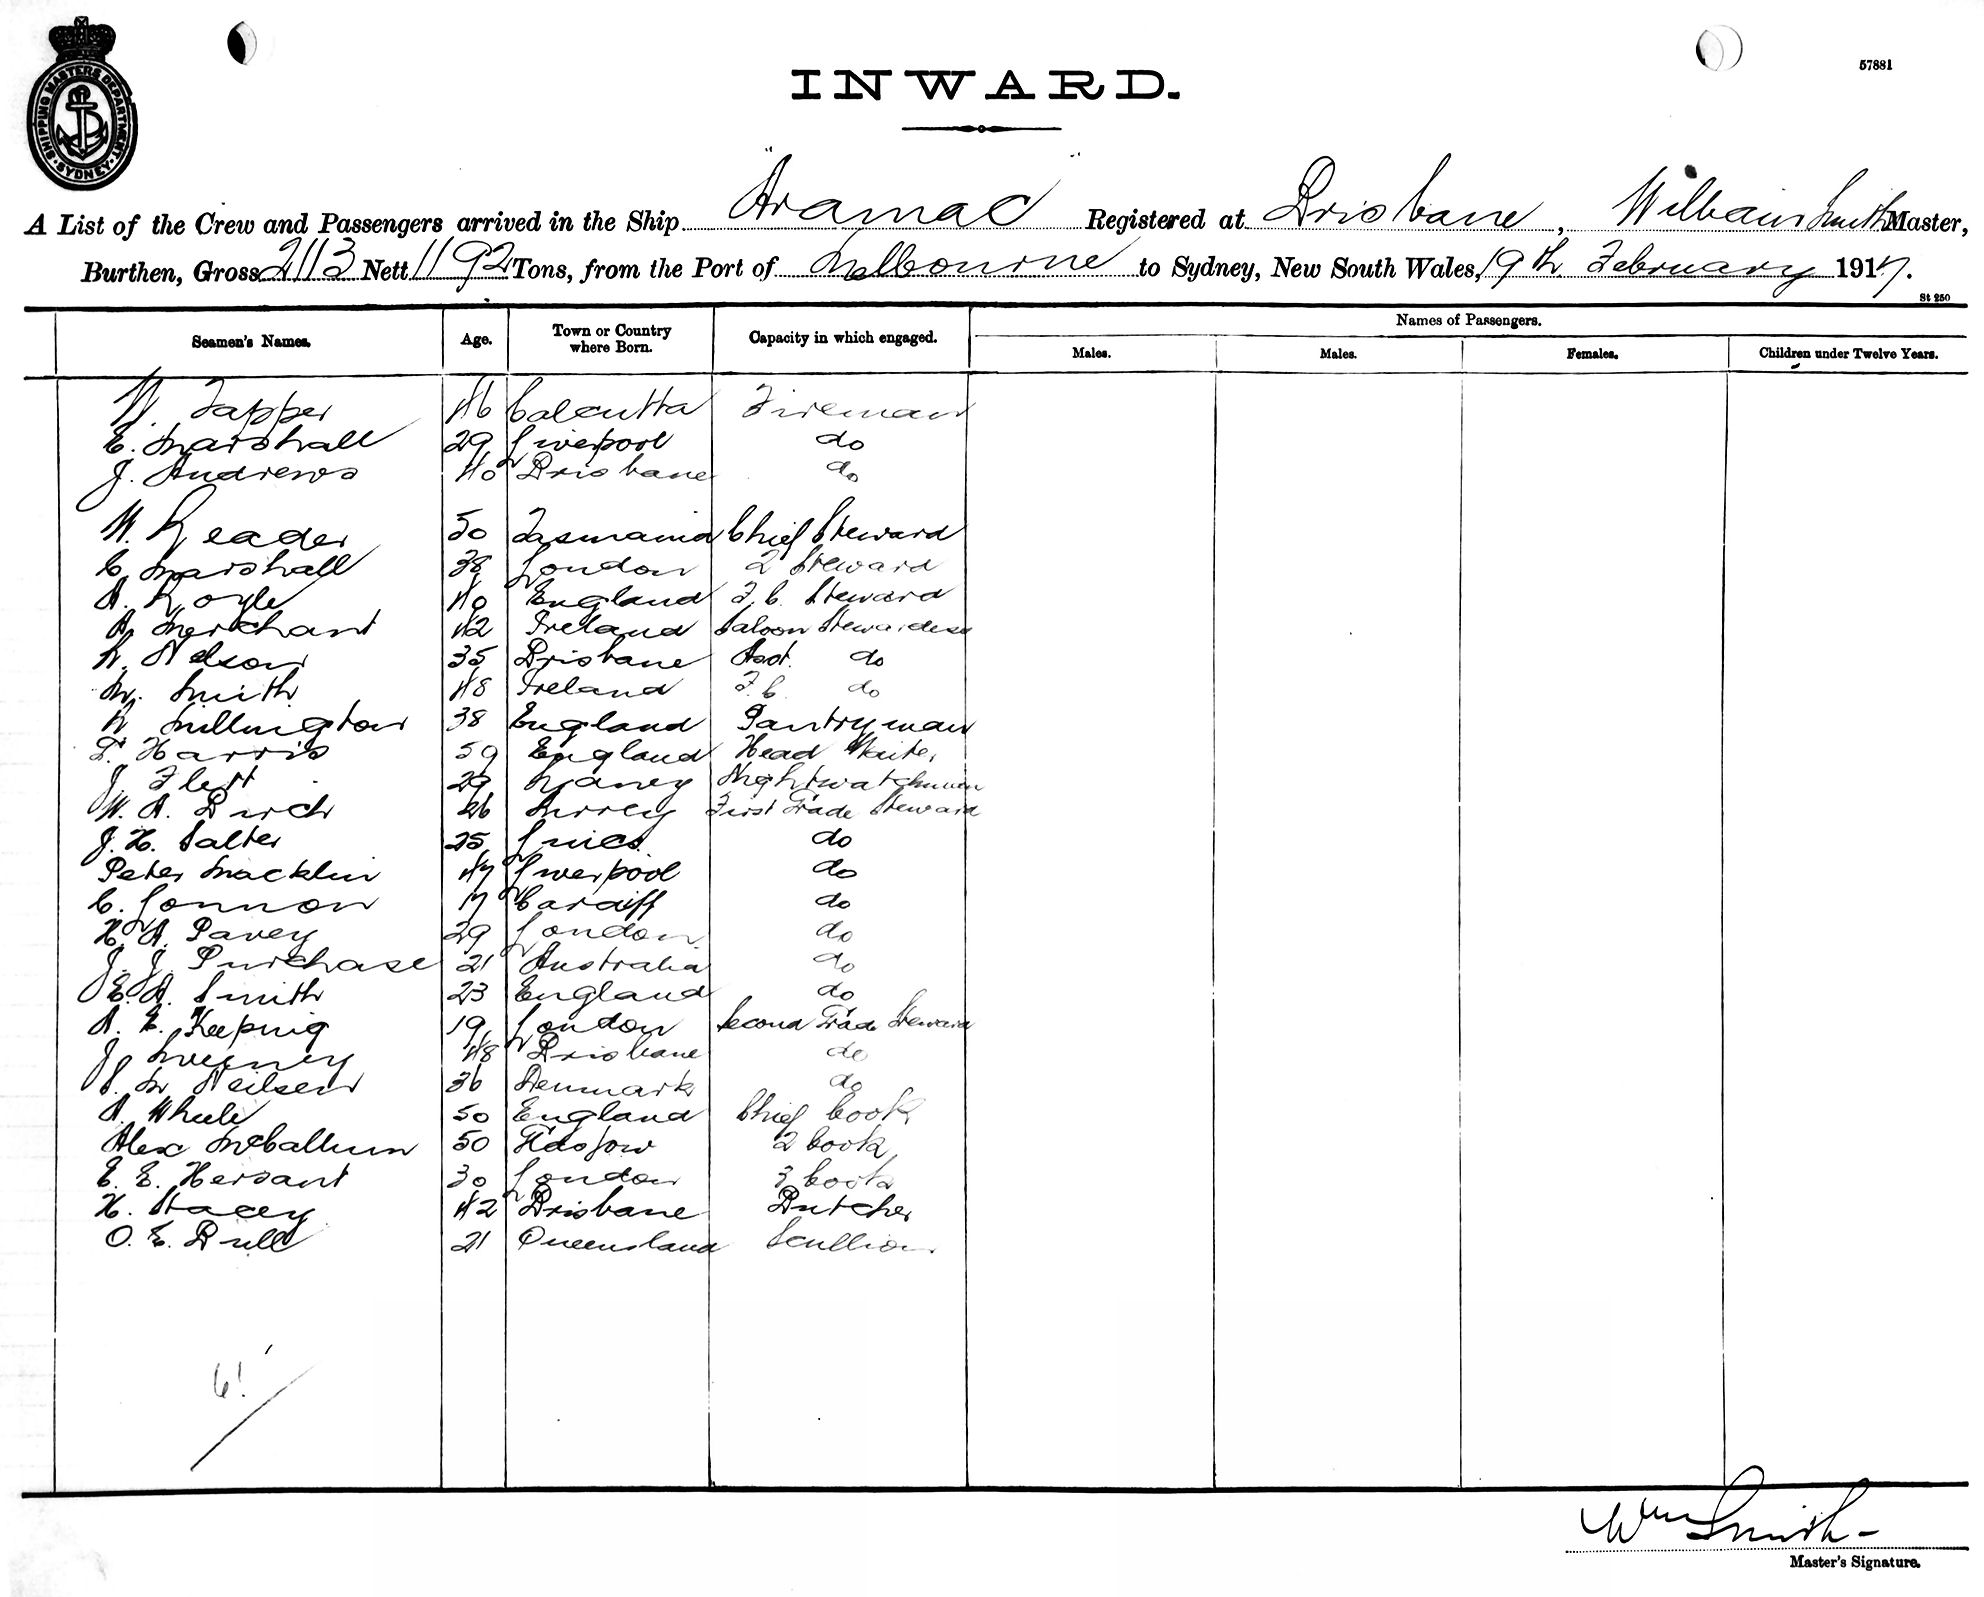 SHIPPING MASTERS DEPARTMENT · SYDNEY ·
57881
INWARD.
A List of the Crew and Passengers arrived in the Ship "Aramac" Registered at Brisbane, William Smith Master,
Burthen, Gross 2113 Nett 1192 Tons, from the Port of Melbourne to Sydney, New South Wales, 19th February 1917.
St 250
Seamen's Names. Age. Town or Country where Born. Capacity in which engaged. Names of Passengers.
Males. Males. Females. Children under Twelve Years.
W. Tapper 46 Calcutta Fireman
E. Marshall 29 Liverpool do
J. Andrews 40 Brisbane do
W. Reader 50 Tasmania Chief Steward
C. Marshall 38 London 2 Steward
A. Royle 40 England F.C. Steward
A. Merchant 42 Ireland Saloon Stewardess
Nelson 35 Brisbane Asst. do
M. Smith 48 Ireland F.C. do
38 England Pantryman
Harris 59 England Head Waiter
J. Flett 29 Nightwatchman
W. A. Birch 26 Surrey First Grade Steward
J. H. Salter 25 do
Peter Macklin 47 Liverpool do
C. Lonnon 17 Cardiff do
H. A. Pavey 29 London do
J. J. Purchase 21 Australia do
E. A. Smith 23 England do
A. E. Keeping 19 London Second Grade Steward
J. Sweeney 48 Brisbane do
M Neilsen 36 Denmark do
A. 50 England Chief Cook
Alex McCallum 50 Glasgow 2 Cook
E. E. Hersant 30 London 3 Cook
H. Stacey 42 Brisbane Butcher
O. E. Bull 21 Queensland Scullion
61
Wm Smith
Master's Signature.